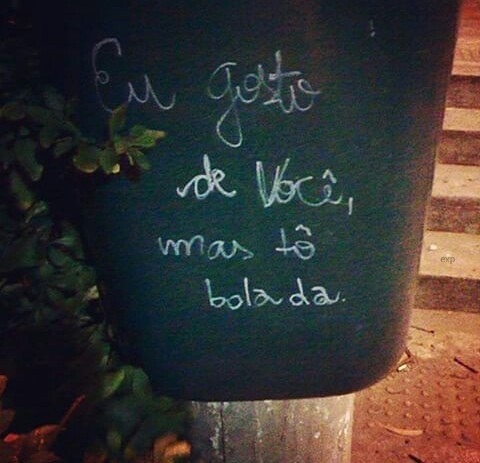 Eu gosto
de Você,
mas tô
bolada.
exp